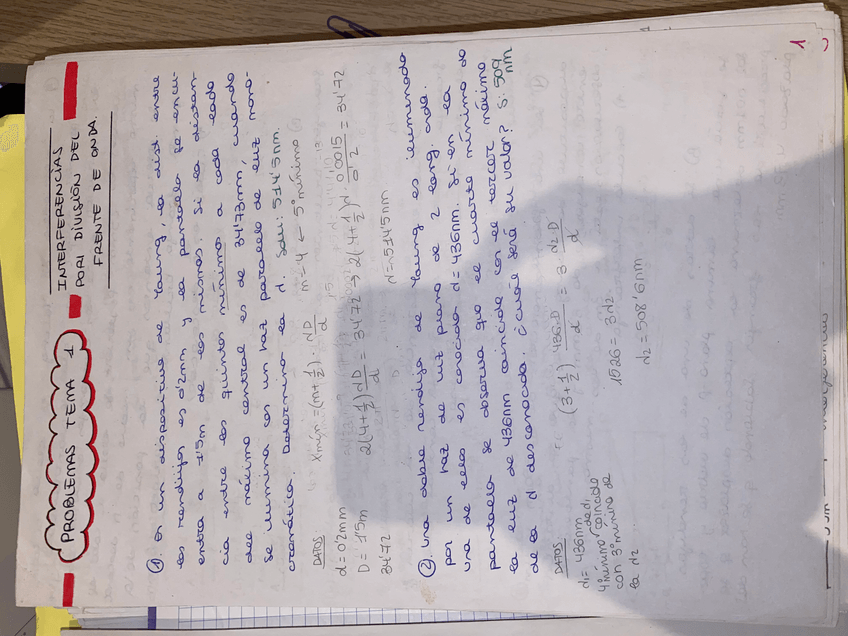 PROBLEMAS TEMA 1
INTERFERENCIAS
POR DIVISIÓN DEL
FRENTE DE ONDA.
① En un dispositivo de Young, la dist. entre
las rendijas es 0'2mm y la pantalla se encu-
entra a 1'5m de las mismas. Si la distan-
cia entre los quintos mínimos a cada lado
del máximo central es de 34'73mm, cuando
se ilumina con un haz paralelo de luz mono-
cromática. Determina la λ. Solu: 514'5nm.
DATOS
d = 0'2mm
D = 1'5m
34'72
Xmín = (m + 1/2) · λD/d
m = 4 ← 5º mínimo
2(4 + 1/2) λD/d = 34'72 → 2(4 + 1/2) λ · 0.0015/0'2 = 34'72
λ = 514'5nm
② Una doble rendija de Young es iluminada
por un haz de luz plano de 2 long. onda.
una de ellas es conocida λ = 436nm. Si en la
pantalla se observa que el cuarto mínimo de
la luz de 436nm coincide con el tercer máximo
de la λ desconocida. ¿Cuál será su valor? S: 509
nm
DATOS
λ1 = 436nm
4º mínimo de λ1
coincide
con 3º mínimo de
la λ2
(3 + 1/2) 436·D/d = 3 · λ2·D/d
1526 = 3λ2
λ2 = 508'6nm
1